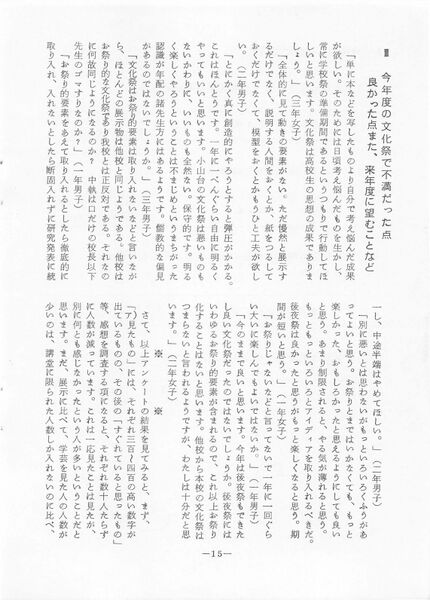 Ⅲ 今年度の文化祭で不満だった点
良かった点また、来年度に望むことなど
「単に本などを写したものより自分で考え悩んだ成果
が欲しい。そのためには日頃考え悩んだものを生かし、
常に学校祭の準備期間であるというつもりで行動してほ
しいと思います。文化祭は高校生の思想の成果でありま
しょう。」（三年女子）
「全体的に見て動きの要素がない。ただ漫然と展示す
るだけでなく、説明する人間をおくとか、紙をつるして
おくだけでなくて、模型をおくとかもうひと工夫が欲し
い。（二年男子）
「とにかく真に創造的にやろうとすると弾圧がかかる。
これはほんとうです。一年に一ぺんぐらい自由に明るく
やってもいいと思います。小山台の文化祭は悪いものも
ないかわりに、いいものも全然ない。保守的です。明る
く楽しくやろうということは不まじめというまちがった
認識が年配の諸先生方にはあるようです。儒教的な偏見
があるのではないでしょうか。」（三年男子）
「文化祭はお祭り的要素は取り入れないなどと言いなが
ら、ほとんどの展示物は他校と同じようである。他校は
お祭り的な文化祭であり我校とは正反対である。それなの
に何故同じようになるのか？　中執は口だけの校長以下
先生のゴマすりなのか？　（一年男子）
「お祭り的要素をあえて取り入れるとしたら徹底的に
取り入れ、入れないとしたら断固入れずに研究発表に統
一し、中途半端はやめてほしい。」（二年男子）
「別に悪いとは思わないがもっといろいろくふうがあ
ってよいと思う。お祭りとまではいかなくても、もっと
楽しかった、おもしろかったと思えるようにしても良い
と思う。あまり制限されると、やる気が薄れると思う。
もっともっといろいろとアイディアを取り入れるべきだ。
後夜祭は良かったと思うがもっと楽しくなると思う。期
間が短いと思う。」（一年女子）
「お祭りじゃないなどと言ってないで一年に一回ぐら
い大いに楽しんでもよいではないか。」（一年男子）
「今のままで良いと思います。今年は後夜祭もできた
し良い文化祭だったのではないでしょうか。後夜祭には
いわゆるお祭り的要素が含まれるので、これ以上お祭り
化することはないと思います。他校から本校の文化祭は
つまらないと言われるようですが、わたしは十分だと思
います。」（二年女子）
※　　　※
さて、以上アンケートの結果を見てみると、まず、
「ア）見たもの」には、それぞれ三百～四百の高い数字が
出ているものの、その後の「すぐれていると思ったもの」
等、感想を調査する項になると、それぞれ数十人たらず
に人数が減っています。これは一応見たことは見たが、
別に何とも感じなかったという人が多いということだと
思います。まだ、展示に比べて、学芸を見た人の人数が
少いのは、講堂に限られた人数しか入れないのに比べ、
—15—